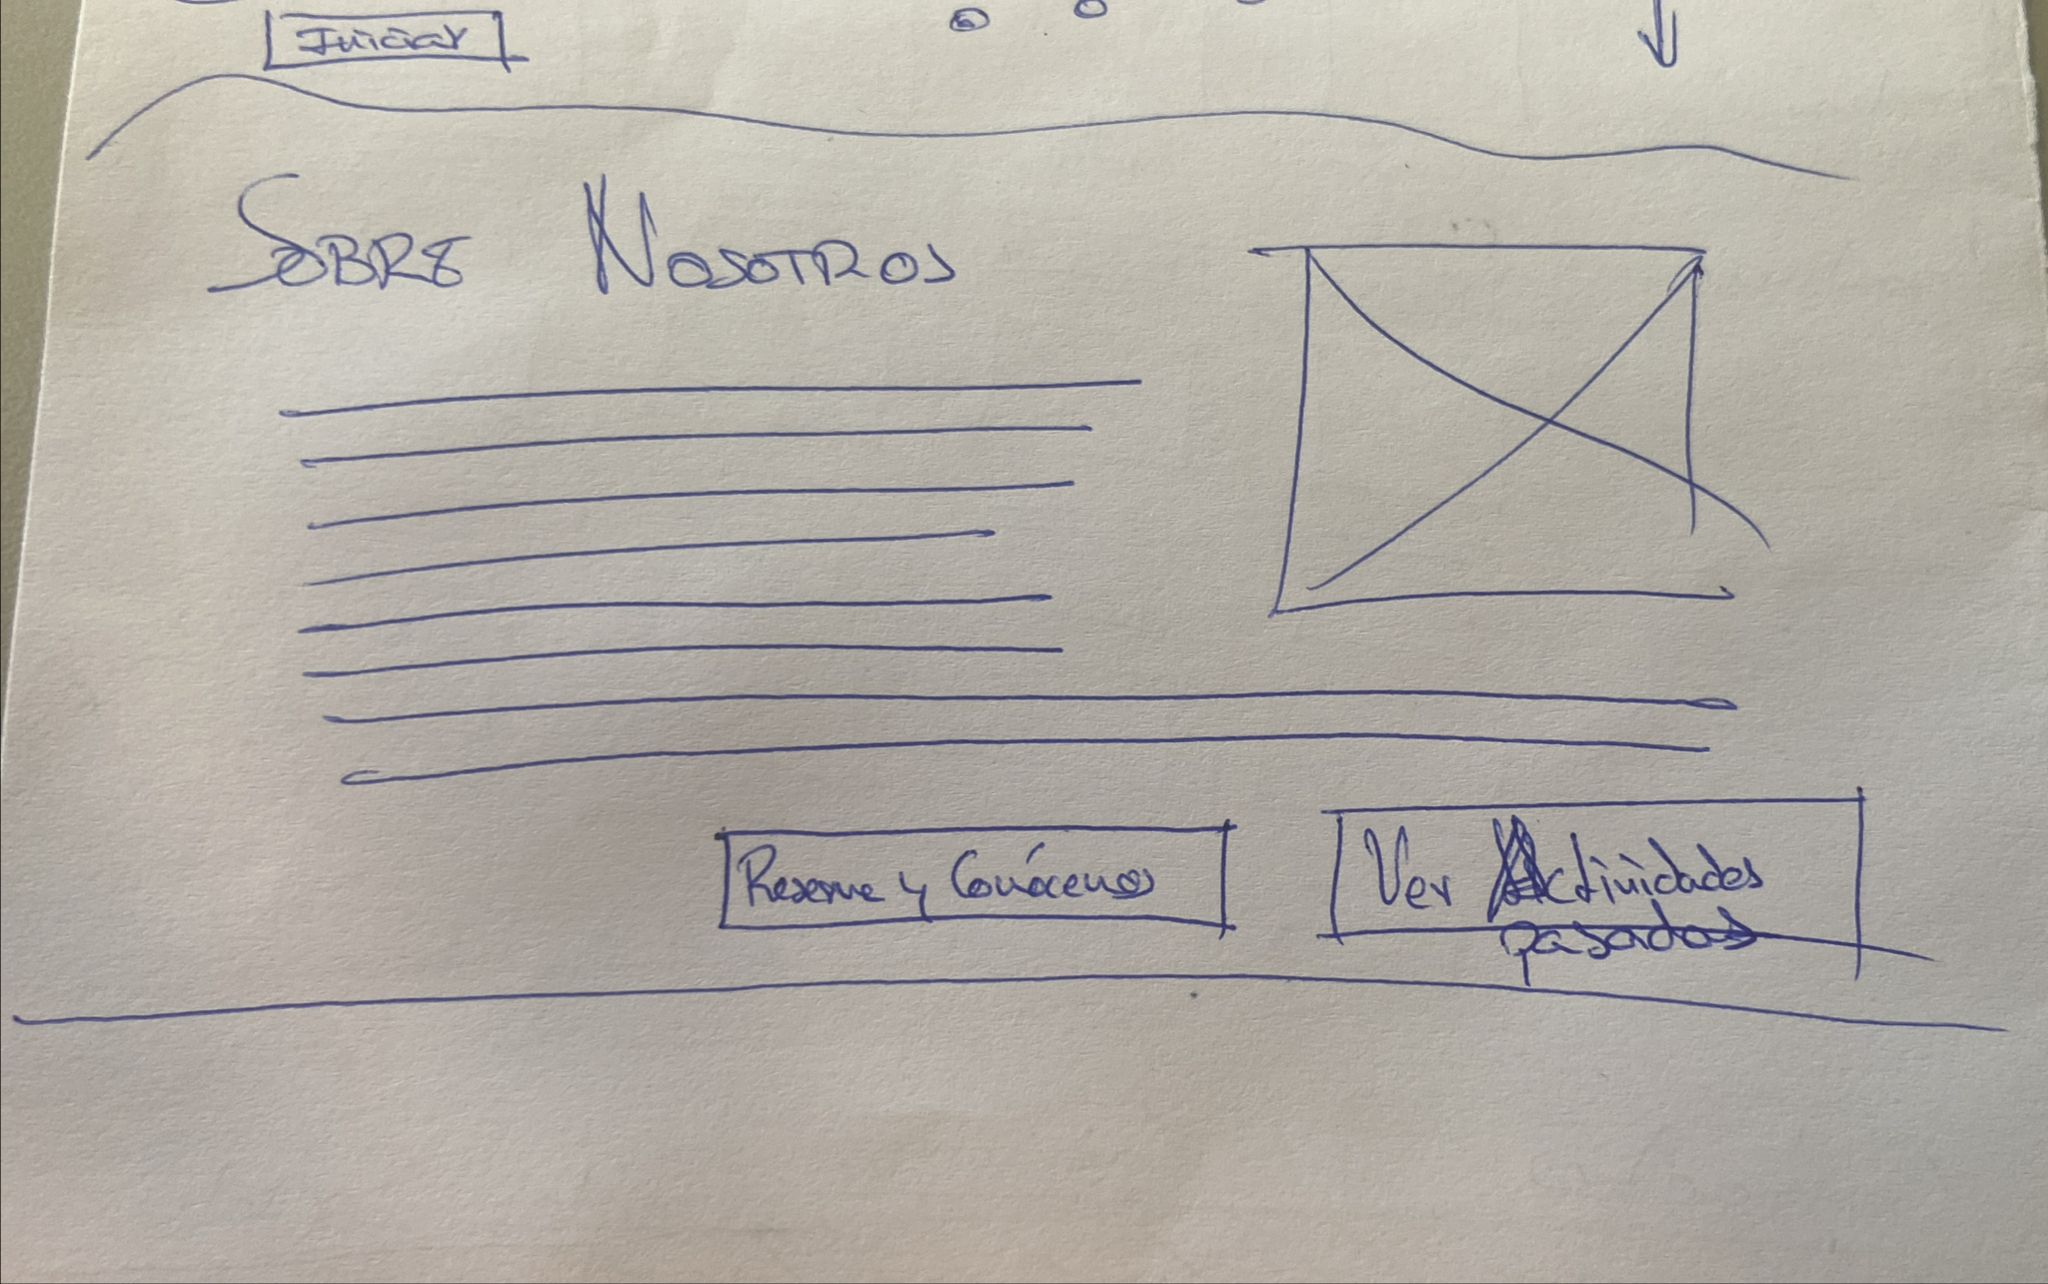 Iniciar
Sobre Nosotros
Reserve y Conócenos
Ver Actividades
pasadas